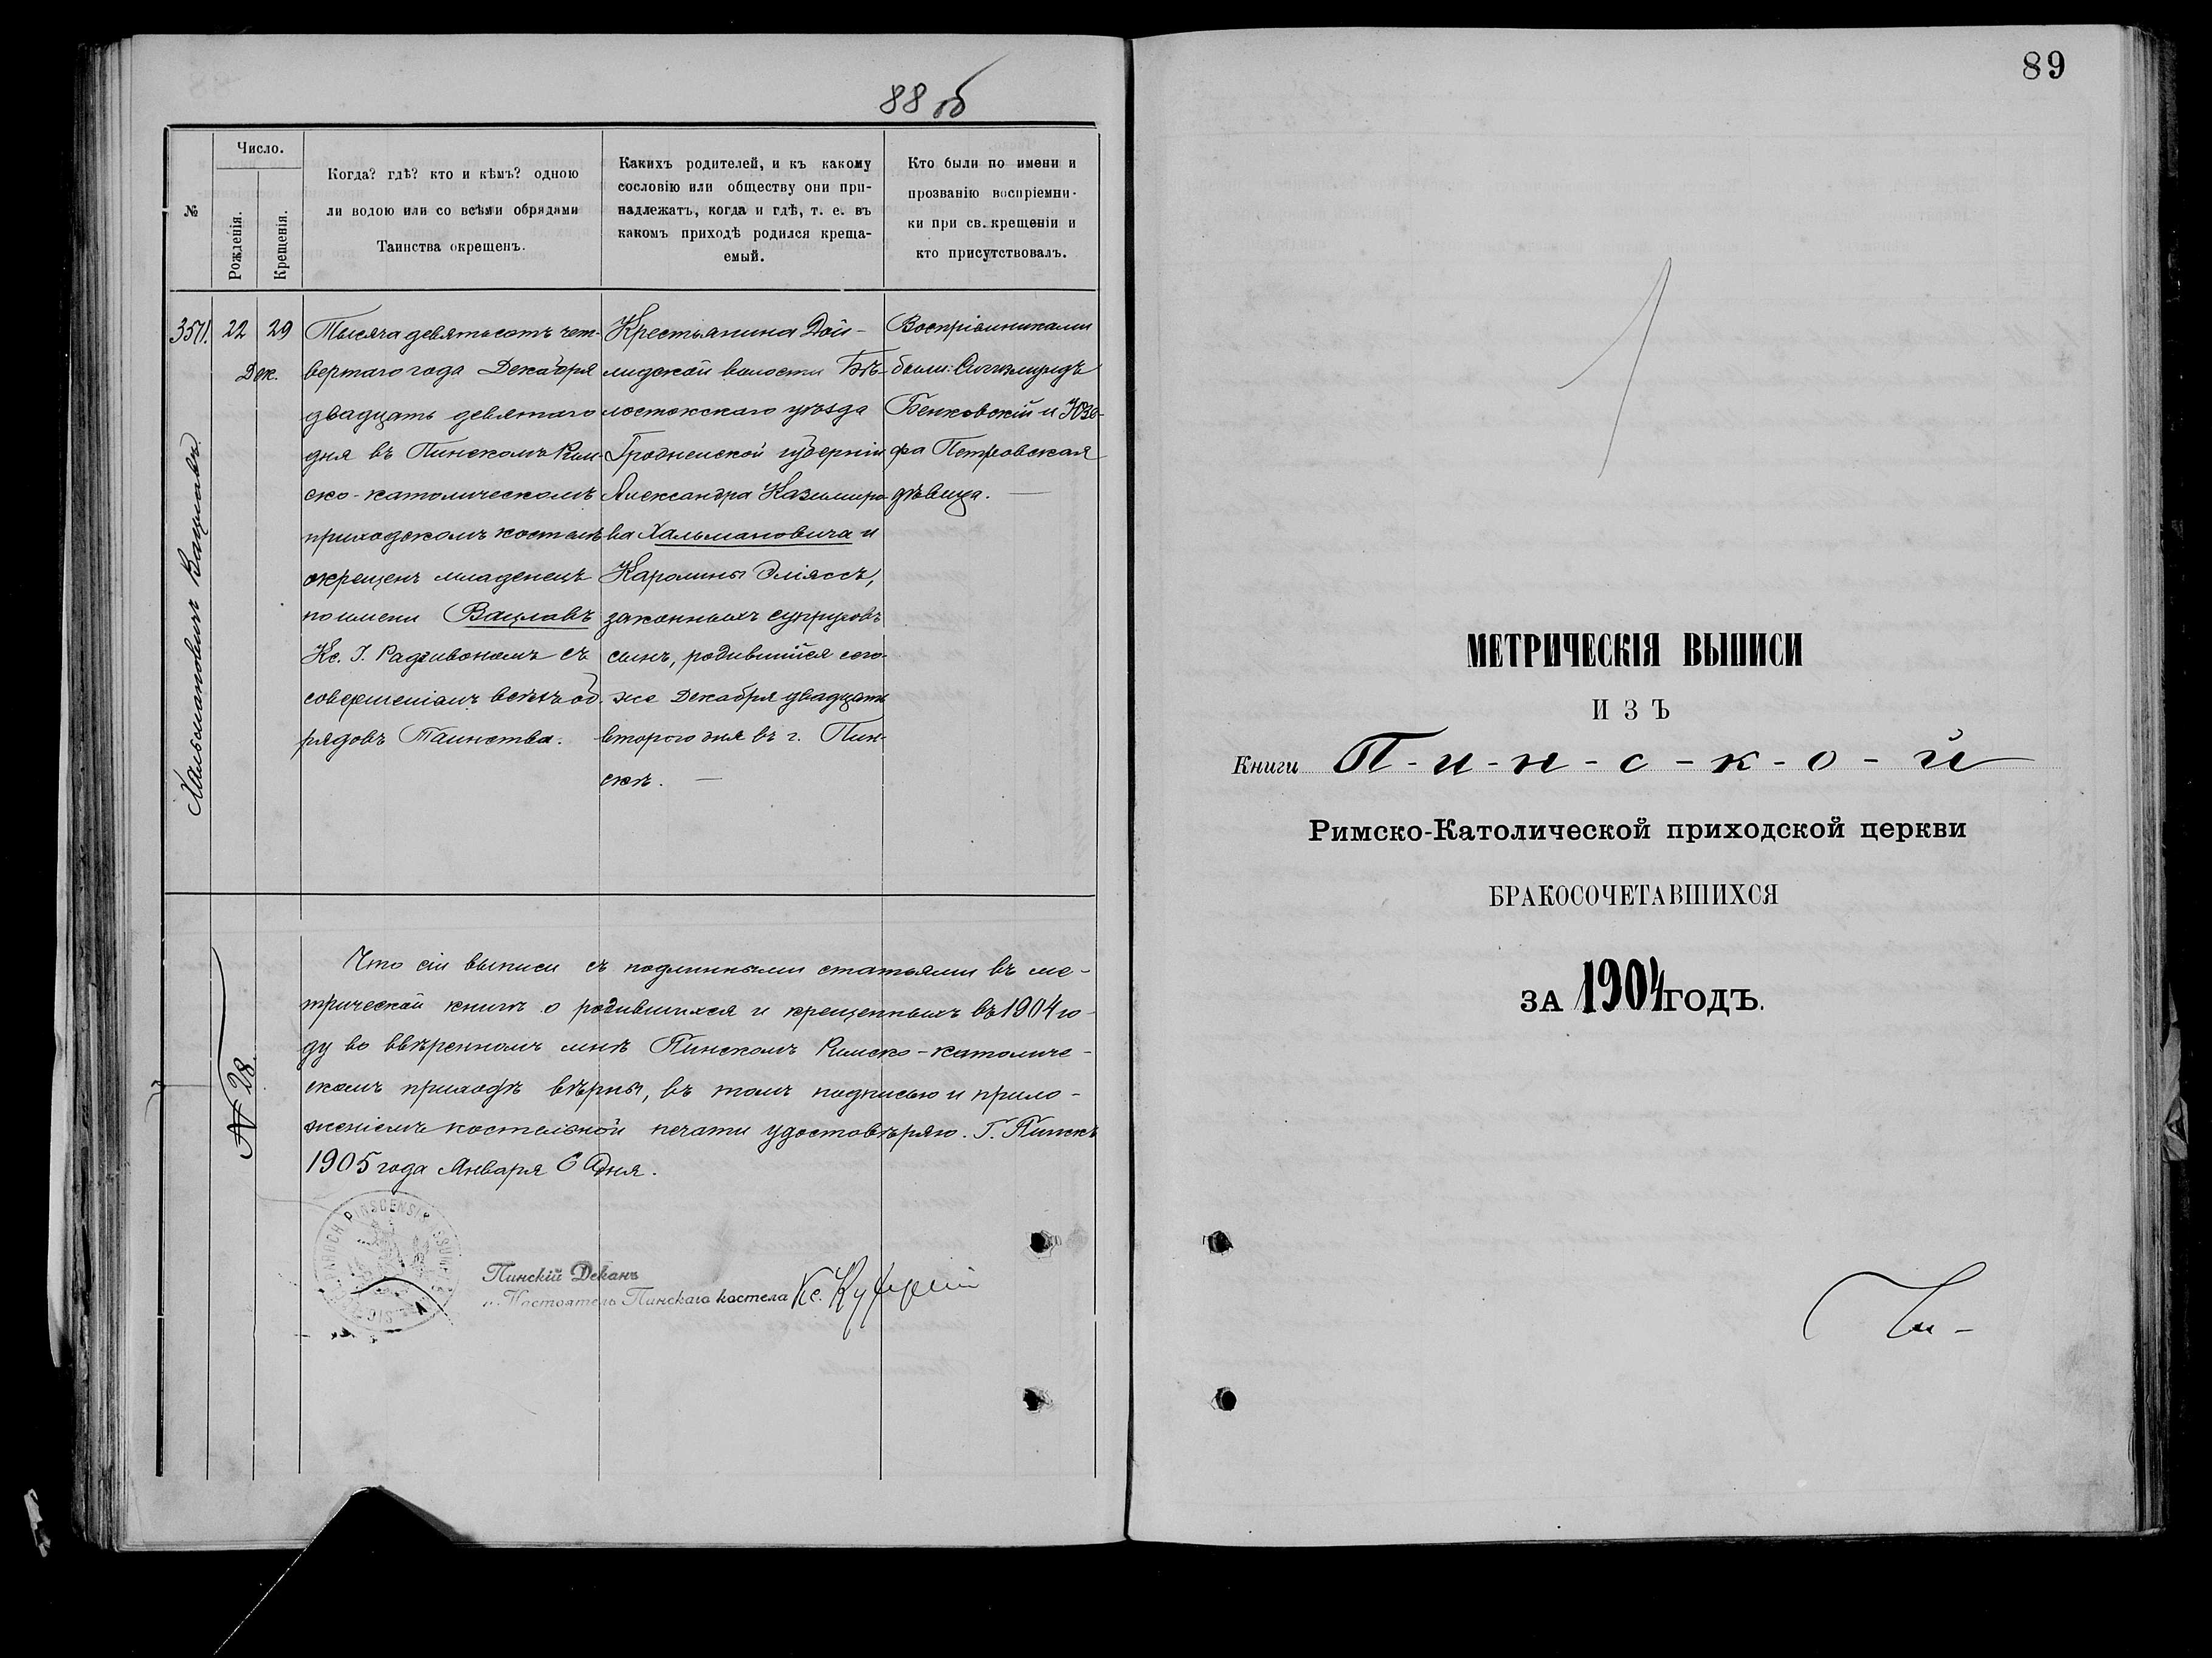 88 об
№
Число.
Рожденія.
Крещенія.
Когда? гдѣ? кто и кѣмъ? одною
ли водою или со всѣми обрядами
Таинства окрещенъ.
Какихъ родителей, и къ какому
сословію или обществу они при-
надлежатъ, когда и гдѣ, т. е. въ
какомъ приходѣ родился креща-
емый.
Кто были по имени и
прозванію воспріемни-
ки при св. крещеніи и
кто присутствовалъ.
Хальмановичъ Вацлавъ.
22
29
Дек.
Тысяча девятьсотъ чет-
вертаго года Декабря
двадцать девятаго
дня въ Пинскомъ Рим-
ско-католическомъ
приходскомъ костелѣ
окрещенъ младенецъ
по имени Вацлавъ
Кс. І. Радзивономъ съ
совершеніемъ всѣхъ об-
рядовъ Таинства.
Крестьянина Дой-
лидской волости Бѣ-
лостокскаго уѣзда
Гродненской губерніи
Александра Казимиро-
ва Хальмановича и
Каролины Эліяссъ,
законныхъ супруговъ
сынъ, родившійся сего-
же Декабря двадцать
второго дня въ г. Пин-
скѣ. —
Воспріемниками
были: Сигизмундъ
Бенковскій и Юзе-
фа Петровская
дѣвица. —
№ 28.
Что сіи выписи съ подлинными статьями въ ме-
трической книгѣ о родившихся и крещенныхъ въ 1904 го-
ду во ввѣренномъ мнѣ Пинскомъ Римско-католиче-
скомъ приходѣ вѣрны, въ томъ подписью и прило-
женіемъ костельной печати удостовѣряю. Г. Пинскъ
1905 года Января 6 дня.
Пинскій Деканъ
и Настоятель Пинскаго костела Кс.
89
1
МЕТРИЧЕСКІЯ ВЫПИСИ
ИЗЪ
Книги П-и-н-с-к-о-й
Римско-Католической приходской церкви
БРАКОСОЧЕТАВШИХСЯ
ЗА 1904 ГОДЪ.